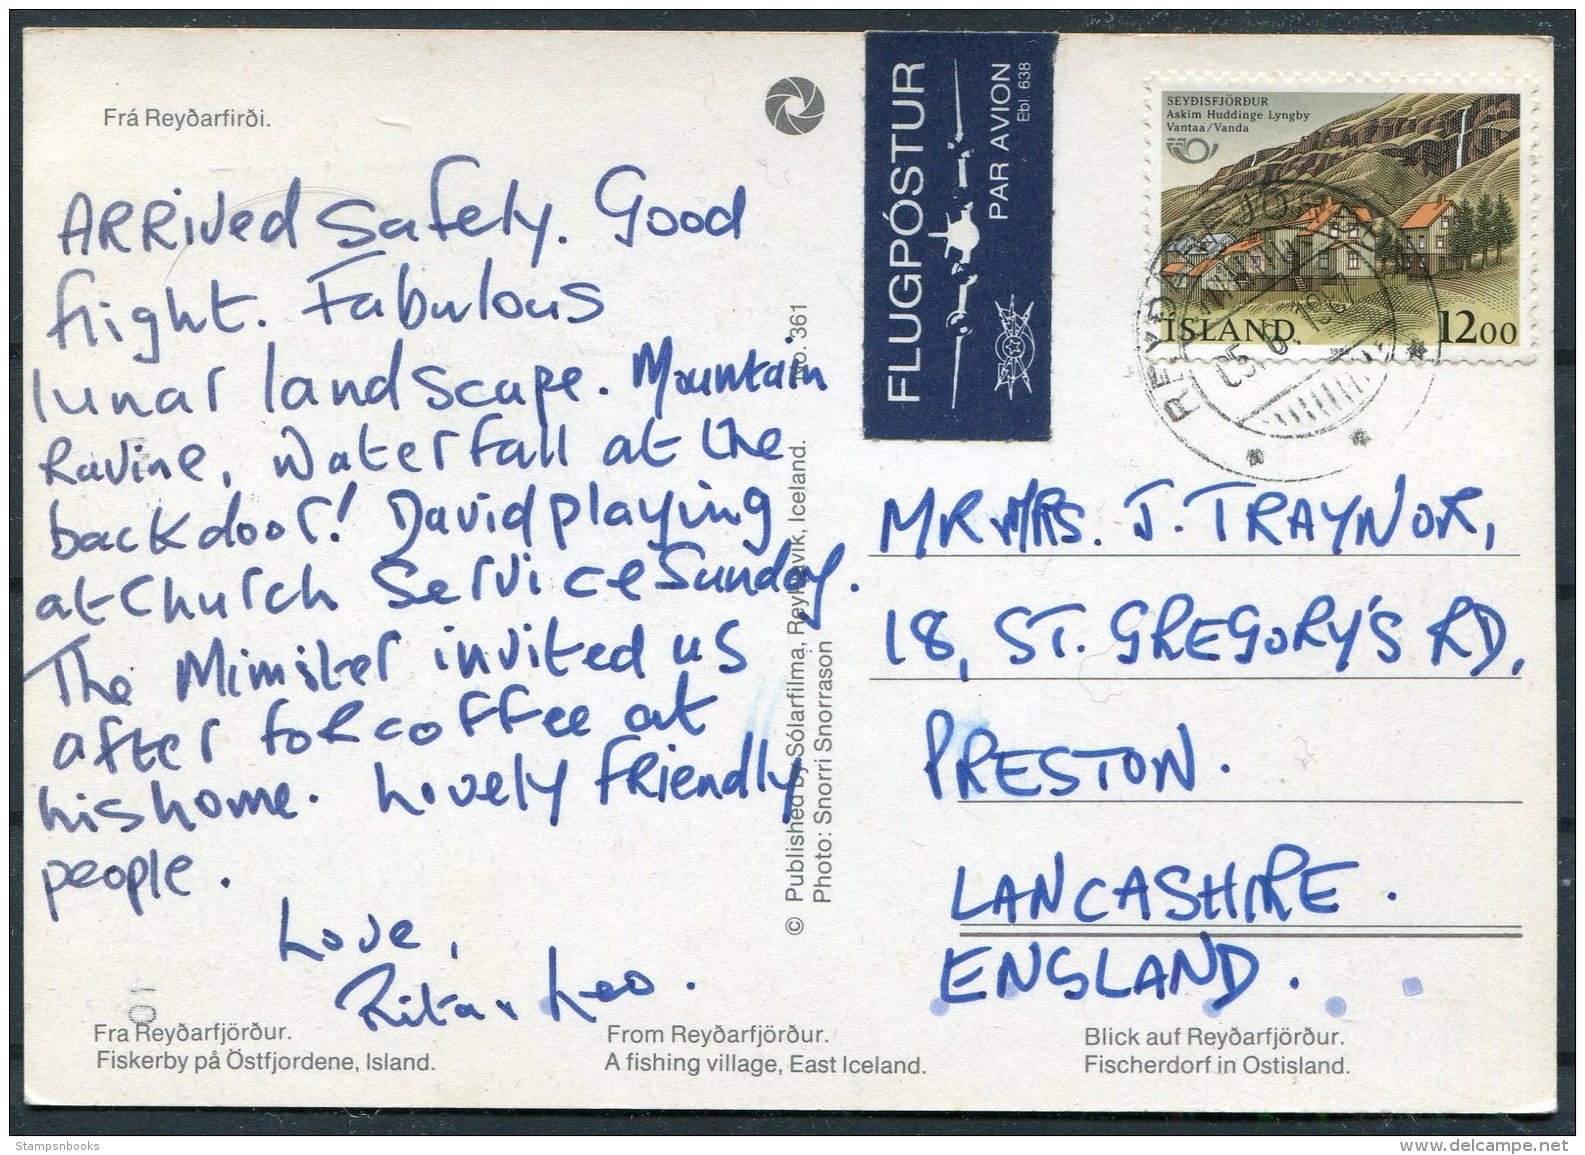 Frá Reyðarfirði.
ARRived Safely. Good
flight. Fabulous
lunar landscape. Mountain
Ravine, Waterfall at the
backdoor! David playing
at Church Service Sunday.
The Minister invited us
after for coffee at
his home. Lovely Friendly
people.
Love,
Rita & Leo.
01
Fra Reyðarfjörður.
Fiskerby på Östfjordene, Island.
From Reyðarfjörður.
A fishing village, East Iceland.
Blick auf Reyðarfjörður.
Fischerdorf in Ostisland.
© Published by Sólarfilma, Reykjavik, Iceland. No. 361
Photo: Snorri Snorrason
FLUGPÓSTUR
PAR AVION
Ebl. 638
SEYÐISFJÖRÐUR
Askim Huddinge Lyngby
Vantaa/Vanda
ÍSLAND
1200
1986
MR & MRS. J. TRAYNOR,
18, ST. GREGORY'S RD,
PRESTON.
LANCASHIRE.
ENGLAND.
Stampsnbooks
www.delcampe.net